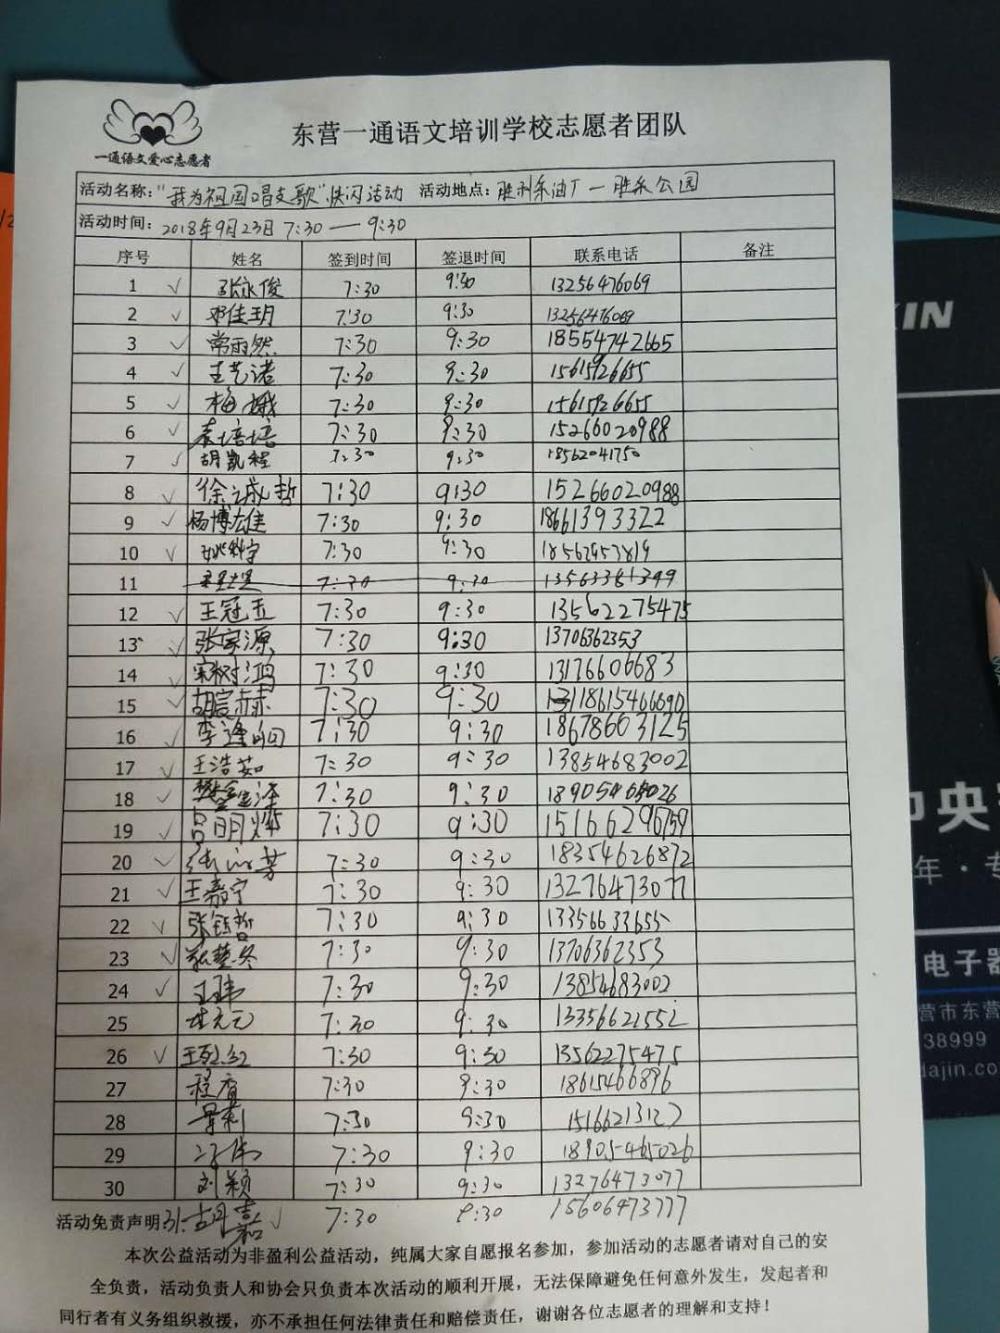 一通语文爱心志愿者
东营一通语文培训学校志愿者团队
活动名称："我为祖国唱支歌"快闪活动 活动地点：胜利东油厂—胜东公园
活动时间：2018年9月23日7:30—9:30
序号 姓名 签到时间 签退时间 联系电话 备注
1 ✓ 张永俊 7:30 9:30 13256476069
2 ✓ 邓佳玥 7:30 9:30 13256476069
3 ✓ 常雨然 7:30 9:30 18554742665
4 ✓ 王艺诺 7:30 9:30 15615926655
5 ✓ 梅娥 7:30 9:30 15615926655
6 ✓ 袁培培 7:30 9:30 15266020988
7 ✓ 胡凯程 7:30 9:30 18562041750
8 ✓ 徐诚哲 7:30 9:30 15266020988
9 ✓ 杨博雄 7:30 9:30 18661393322
10 ✓ 姚科宇 7:30 9:30 18562953819
11 7:30 9:30 13563381399
12 ✓ 王冠五 7:30 9:30 13562275475
13 ✓ 张家源 7:30 9:30 13706362353
14 ✓ 宋树鸿 7:30 9:30 13176606683
15 ✓ 胡宸赫 7:30 9:30 18615466690
16 ✓ 李逢时 7:30 9:30 18678603125
17 ✓ 王浩茹 7:30 9:30 13854683002
18 ✓ 樊鑫泽 7:30 9:30 18905465026
19 ✓ 吕明灿 7:30 9:30 15166296759
20 ✓ 7:30 9:30 18354626872
21 ✓ 王嘉宁 7:30 9:30 13276473077
22 ✓ 张钰哲 7:30 9:30 13356633655
23 ✓ 张慧冬 7:30 9:30 13706362353
24 ✓ 王玮 7:30 9:30 13854683002
25 7:30 9:30 13356621552
26 ✓ 王烈红 7:30 9:30 13562275475
27 程眉 7:30 9:30 18615466896
28 7:30 9:30 15166213127
29 7:30 9:30 18905465026
30 刘颖 7:30 9:30 13276473077
活动免责声明 31. 胡嘉 ✓ 7:30 9:30 15606473777
本次公益活动为非盈利公益活动，纯属大家自愿报名参加，参加活动的志愿者请对自己的安
全负责，活动负责人和协会只负责本次活动的顺利开展，无法保障避免任何意外发生，发起者和
同行者有义务组织救援，亦不承担任何法律责任和赔偿责任，谢谢各位志愿者的理解和支持！
KIN
中央
年·专
电子器
营市东营
38999
dajin.co